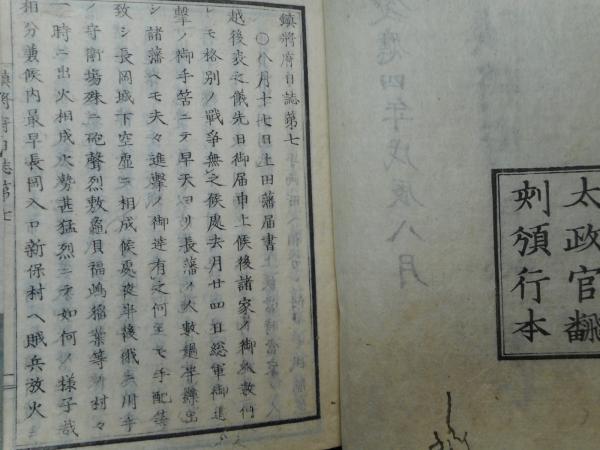 太政官翻
刻頒行本
慶應四年戊辰八月
鎮將府日誌第七
〇八月十七日上田藩届書
越後表之儀先日御届申上候後諸家ノ御人数何
レモ格別ノ戰爭無之候處去月廿四日総軍御進
擊ノ御手筈ニテ早天ヨリ長藩ノ人數過半繰出
シ諸藩ヘモ夫々進擊ノ御達有之何レモ手配等
致シ長岡城下空虛ニ相成候處夜半後俄
ノ守衛場殊ニ砲聲烈敷龜貝福嶋稲葉等ノ村々
一時ニ出火相成火勢甚猛烈ニテ如何ノ様子哉
相分兼候内最早長岡入口新保村ヘ賊兵放火
鎮將府日誌第七